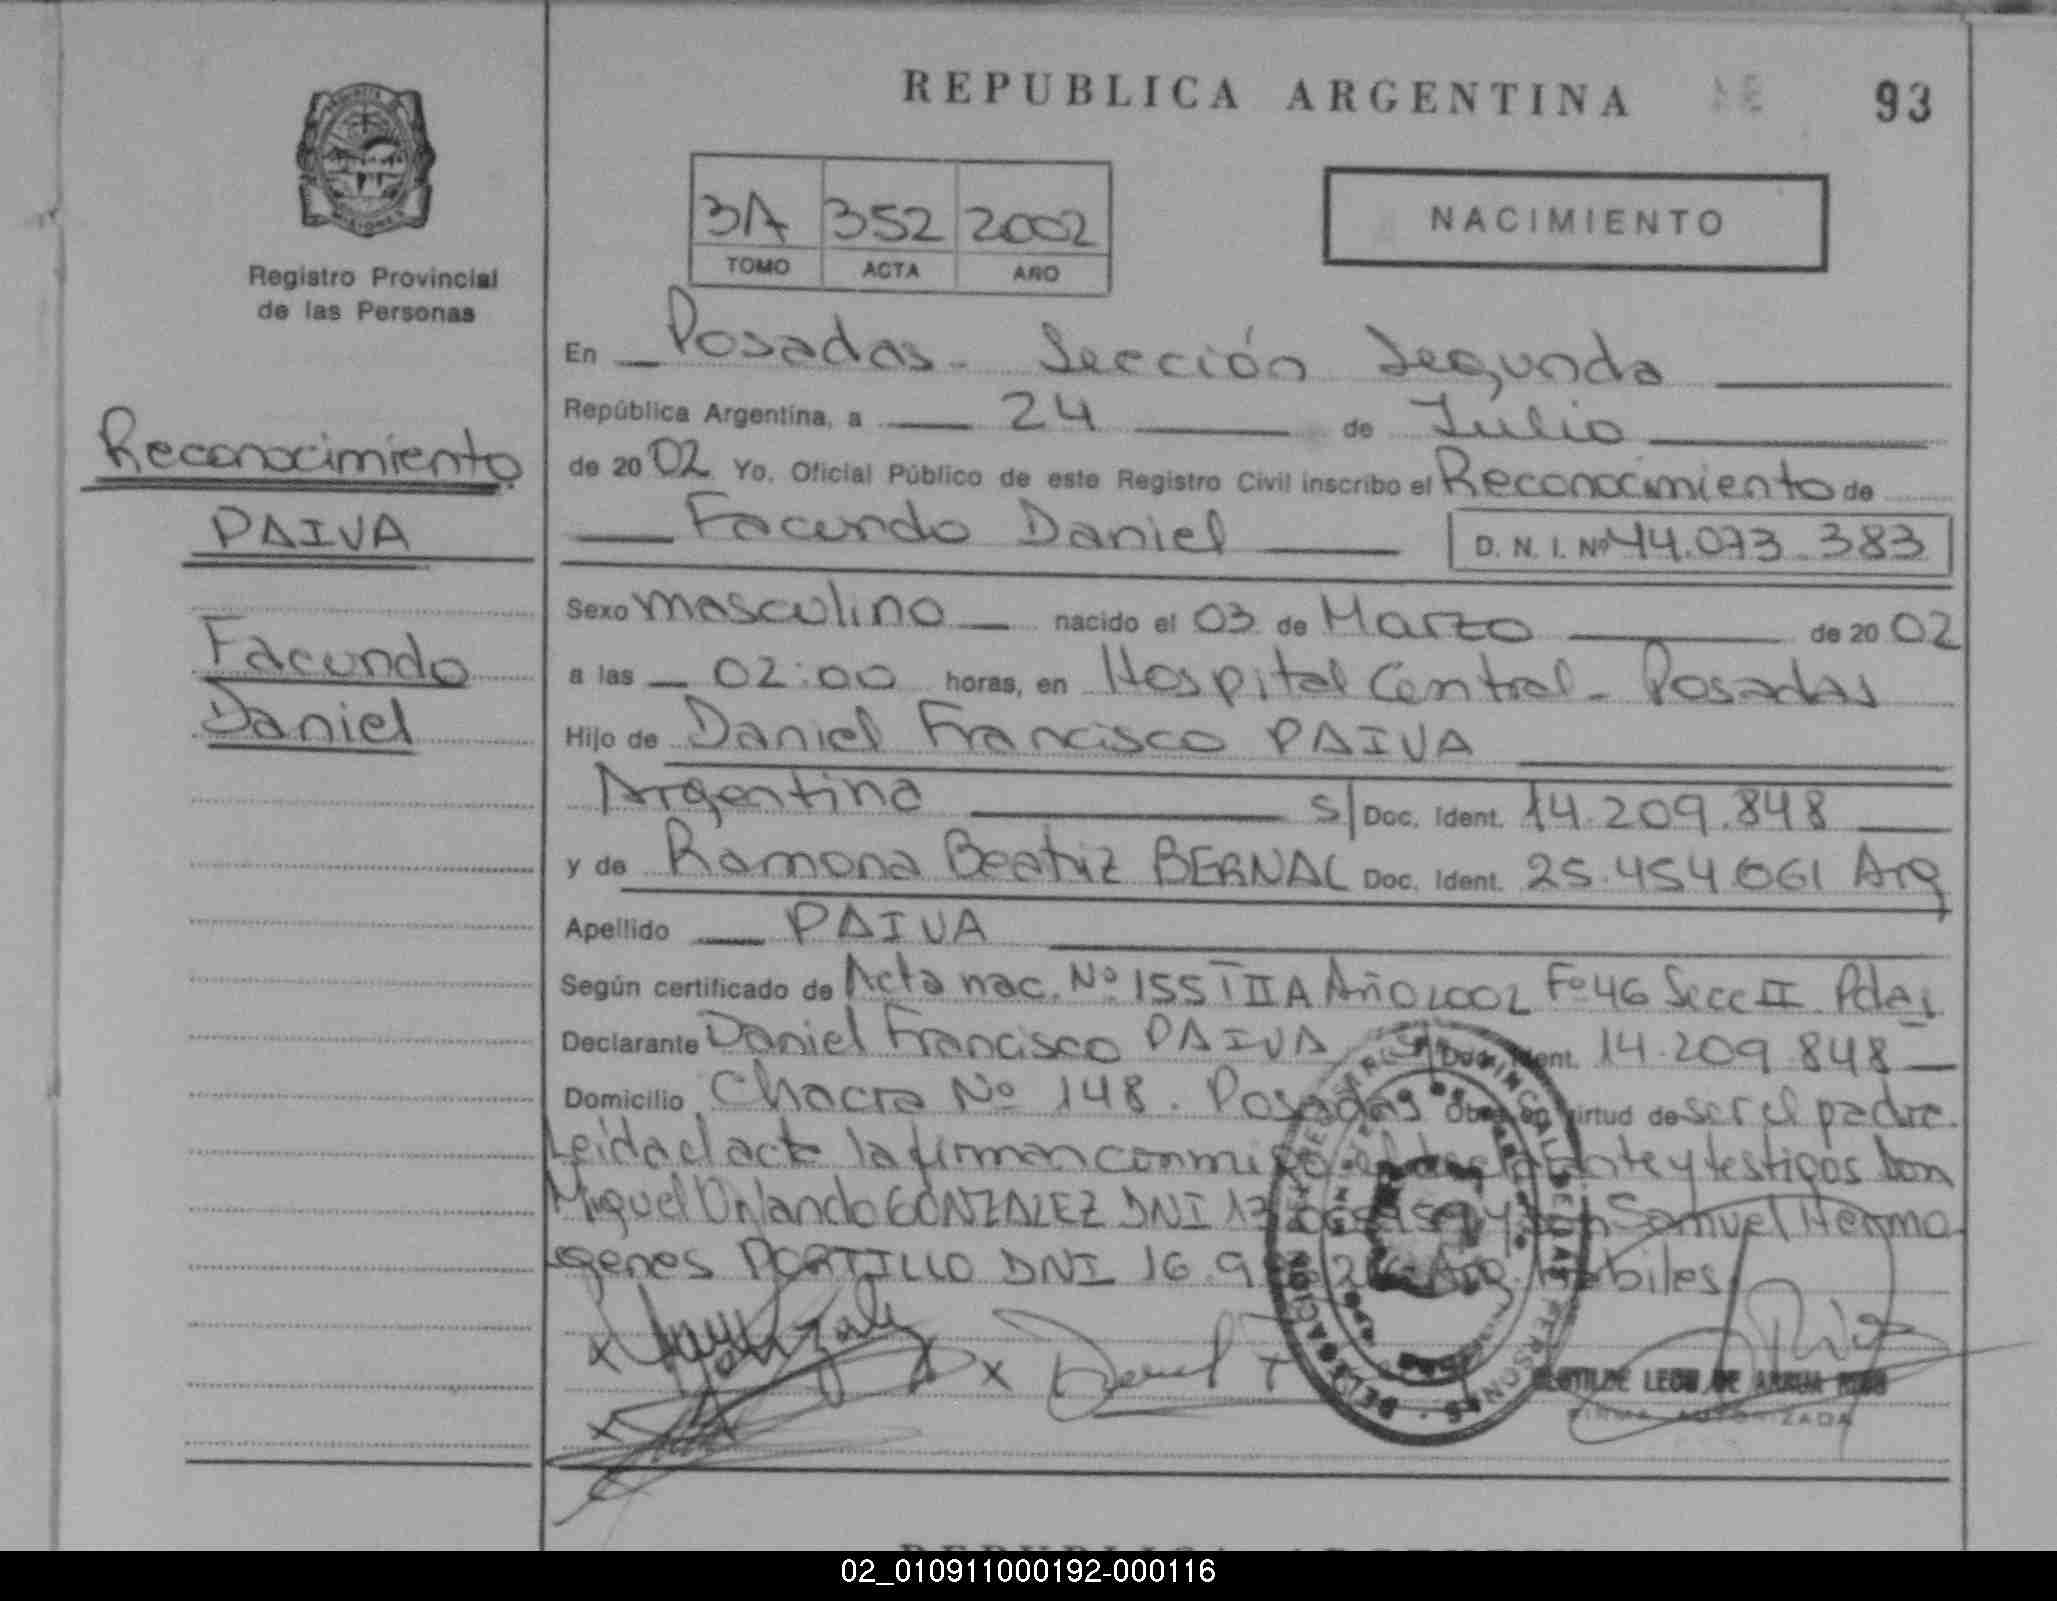 REPUBLICA ARGENTINA
93
Registro Provincial
de las Personas
3A 352 2002
TOMO ACTA AÑO
NACIMIENTO
Reconocimiento
PAIVA
Facundo
Daniel
En Posadas - Sección Segunda
República Argentina, a 24 de Julio
de 2002 Yo, Oficial Público de este Registro Civil inscribo el Reconocimiento de
Facundo Daniel D. N. I. Nº 44.073.383
Sexo masculino nacido el 03 de Marzo de 2002
a las 02:00 horas, en Hospital Central - Posadas
Hijo de Daniel Francisco PAIVA
Argentina s/ Doc. Ident. 14.209.848
y de Ramona Beatriz BERNAL Doc. Ident. 25.454.061 Arg
Apellido PAIVA
Según certificado de Acta nac. Nº 155 T IIA Año 2002 Fº 46 Secc II Pdas
Declarante Daniel Francisco PAIVA Doc. Ident. 14.209.848
Domicilio Chacra Nº 148. Posadas Obra en virtud de ser el padre.
Leida el acta la firman conmigo el declarante y testigos Don
Miguel Orlando GONZALEZ DNI y Don Samuel Hermo
genes PORTILLO DNI 16.9 Arg. Habiles.
FIRMA AUTORIZADA
02_010911000192-000116